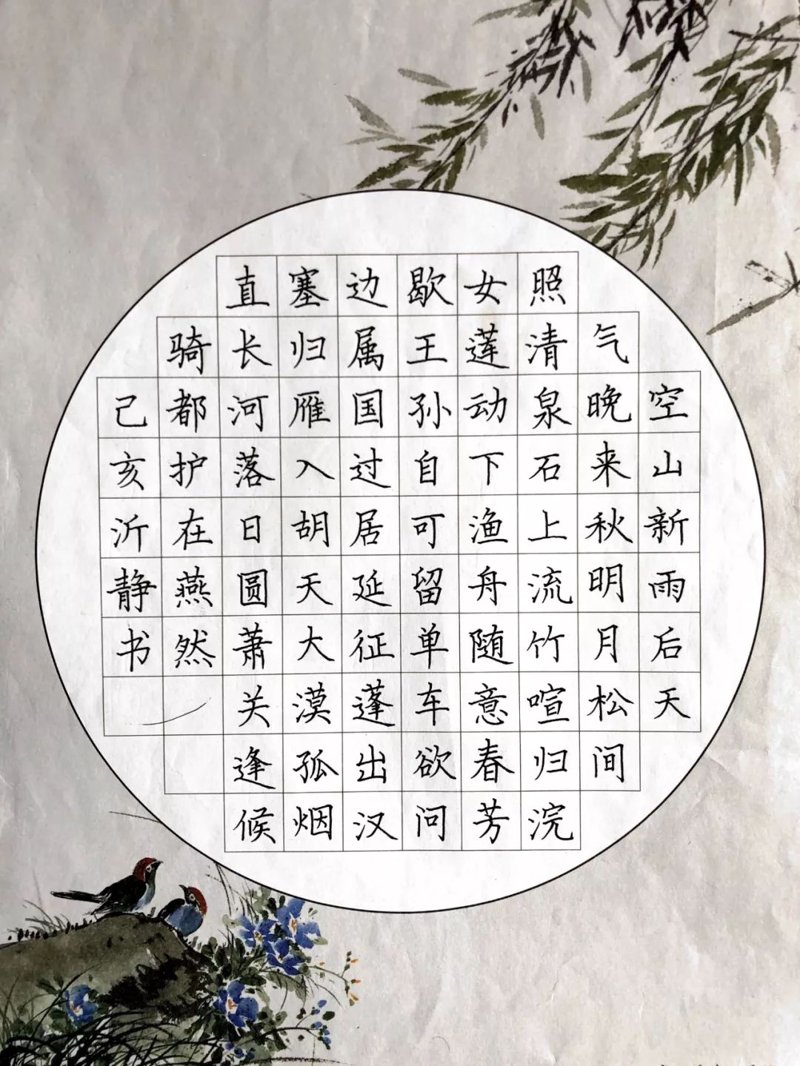 空山新雨后天
气晚来秋明月松间
照清泉石上流竹喧归浣
女莲动下渔舟随意春芳
歇王孙自可留单车欲问
边属国过居延征蓬出汉
塞归雁入胡天大漠孤烟
直长河落日圆萧关逢候
骑都护在燕然
己亥沂静书